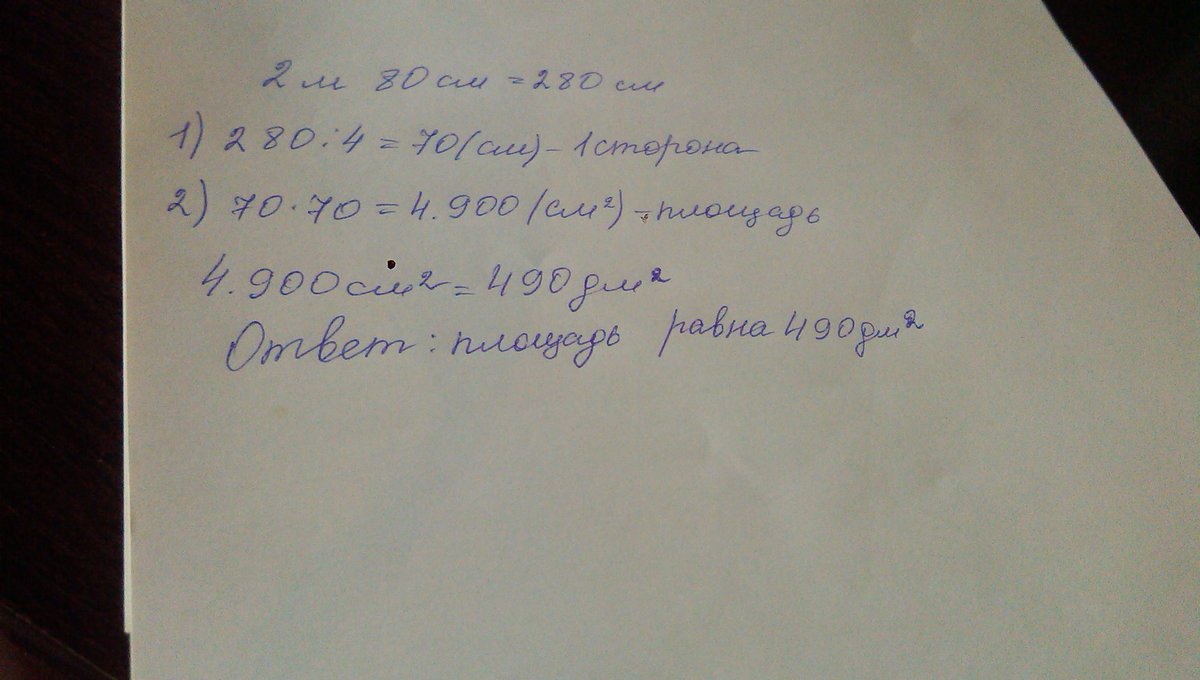 2 м 80 см = 280 см
1) 280 : 4 = 70 (см) - 1 сторона
2) 70 · 70 = 4.900 (см²) - площадь
4.900 см² = 490 дм²
Ответ : площадь равна 490 дм²